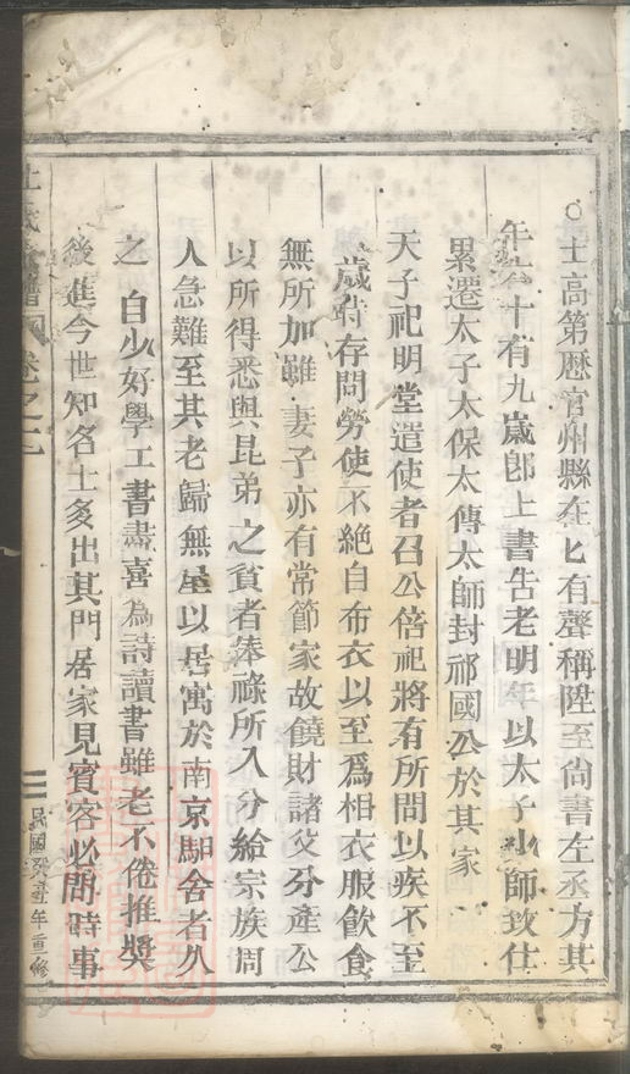 士高第歷官州縣在七有聲稱陞至尙書左丞方其
年六十有九歲卽上書告老明年以太子少師致仕
累遷太子太保太傳太師封祁國公於其家
天子祀明堂遣使者召公倍祀將有所問以疾不至
歲時存問勞使不絕自布衣以至爲相衣服飮食
無所加雖妻子亦有常節家故饒財諸父分產公
以所得悉與昆弟之貧者俸祿所入分給宗族周
人急難至其老歸無屋以居寓於南京馹舍者久
之 自少好學工書畫喜為詩讀書雖老不倦推獎
後進今世知名士多出其門居家見賓客必問時事
卷之
民國癸年重修